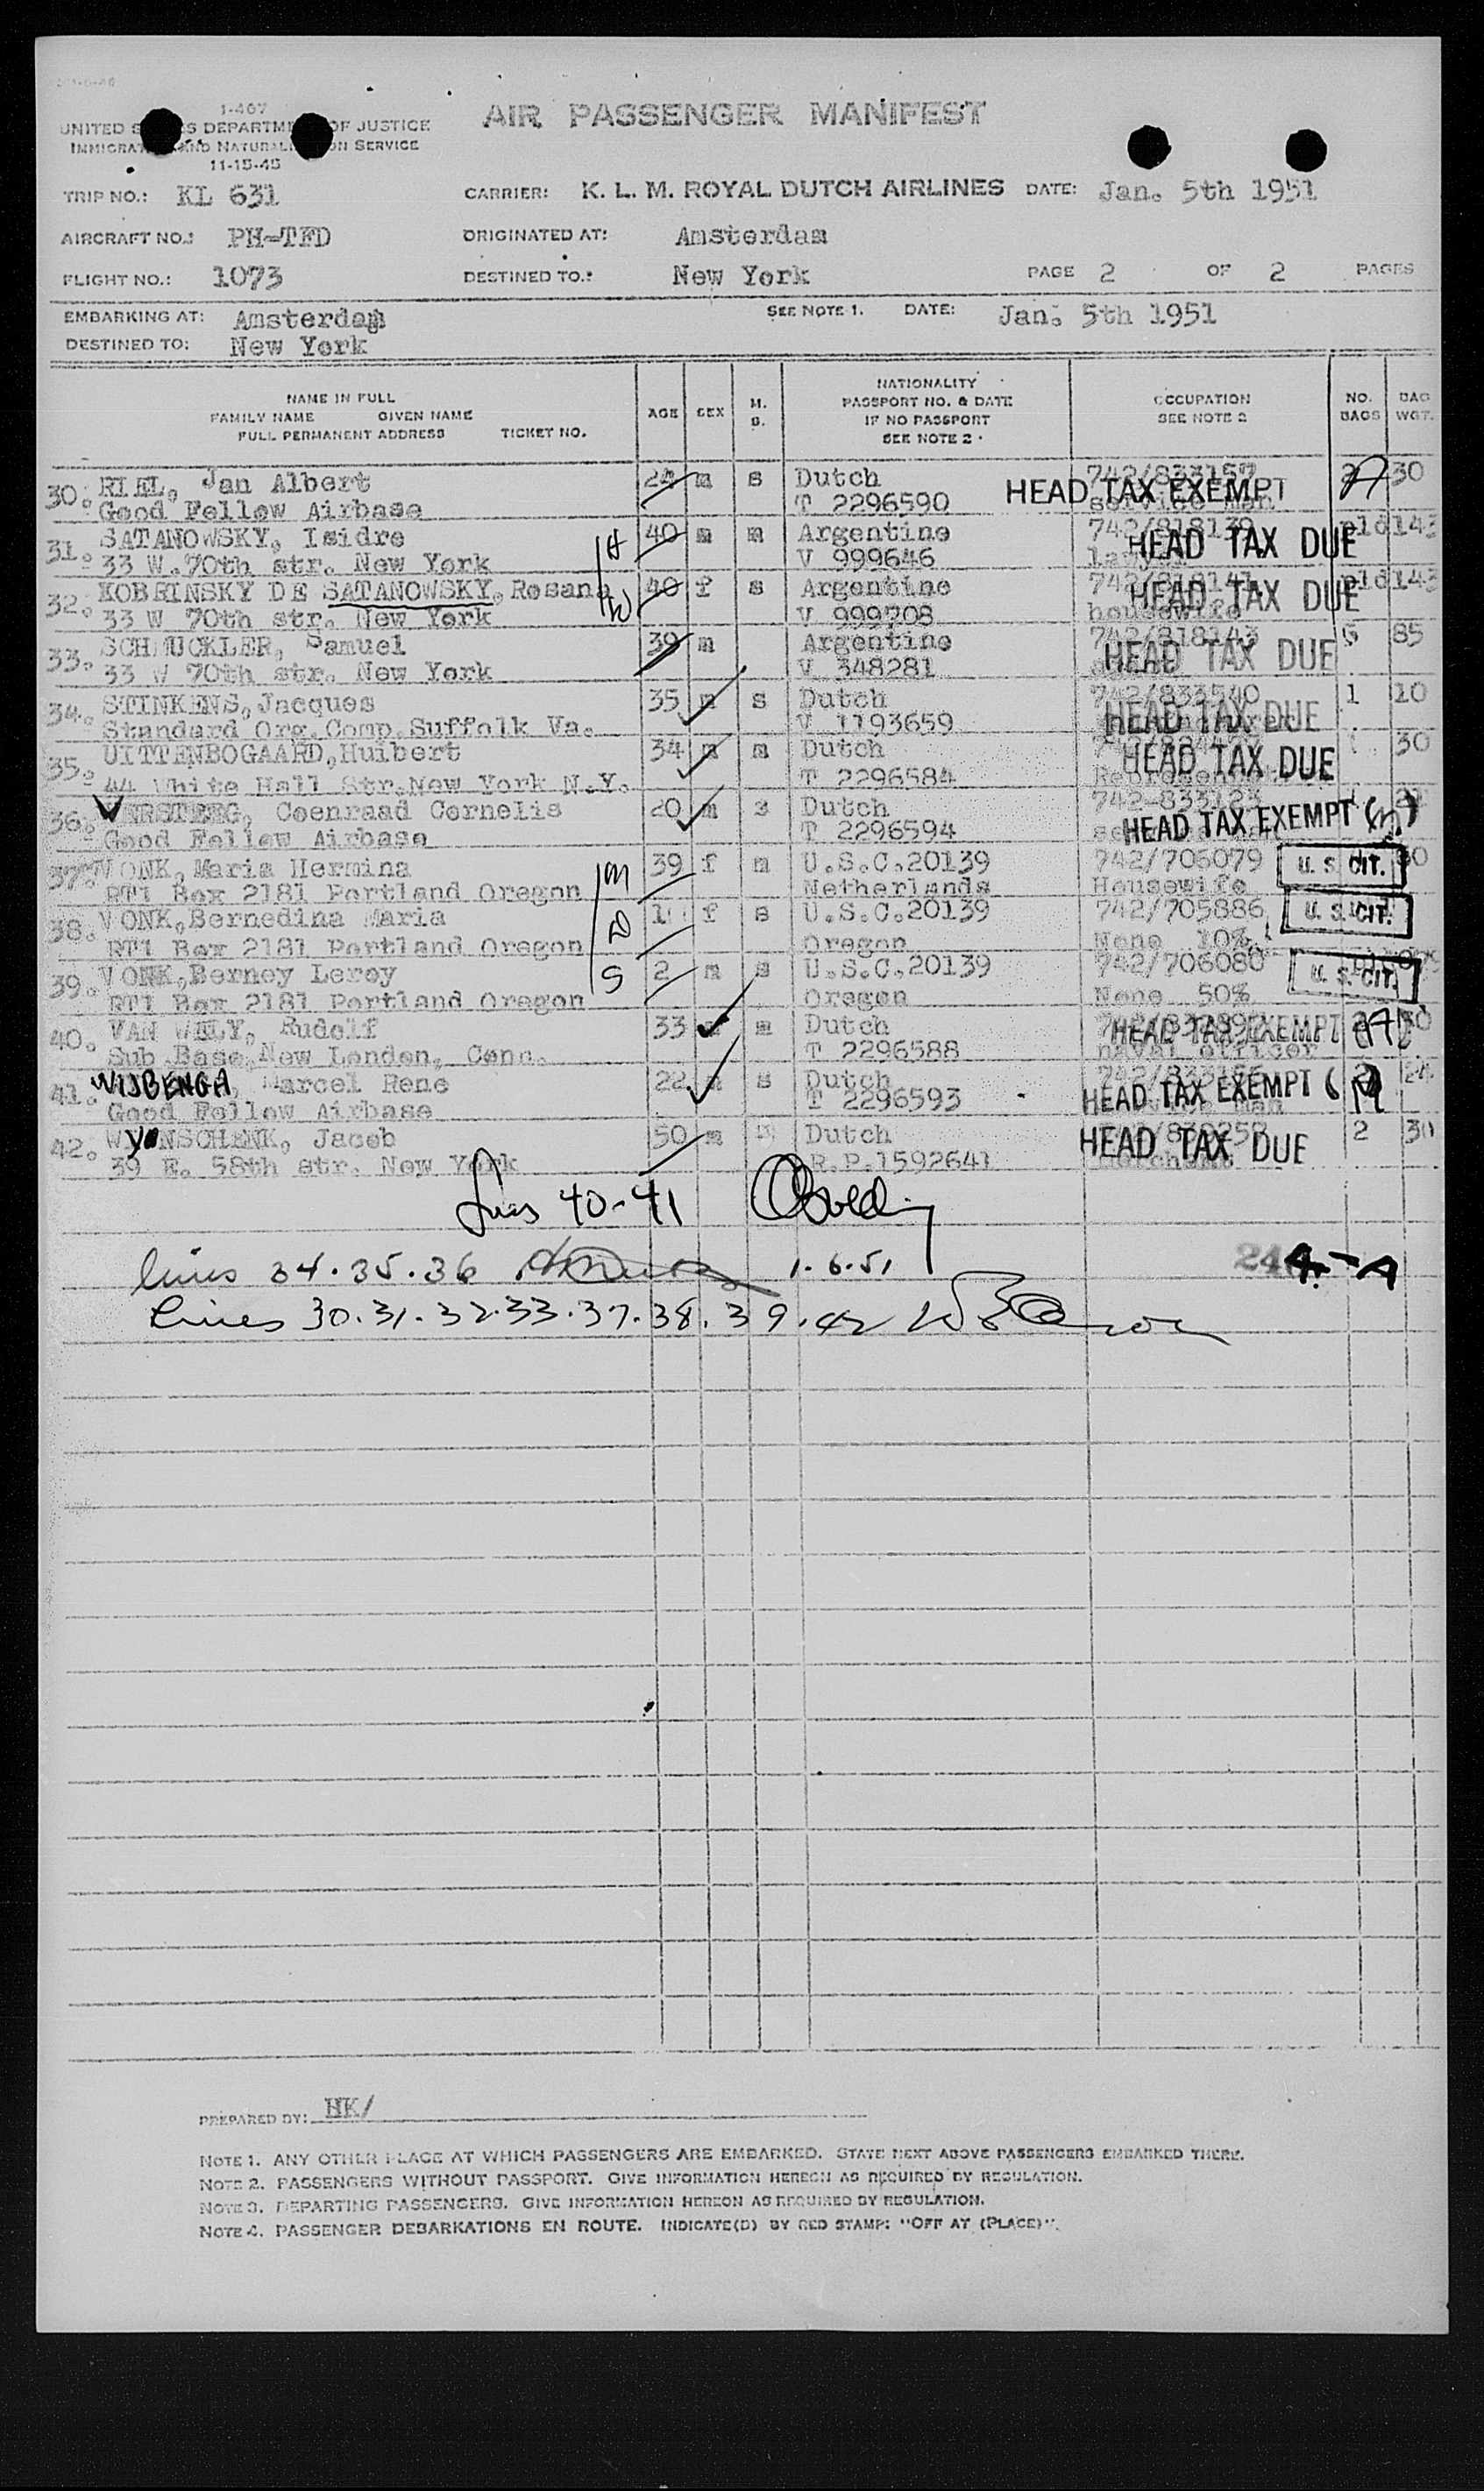 1-407
UNITED STATES DEPARTMENT OF JUSTICE
IMMIGRATION AND NATURALIZATION SERVICE
11-15-45
AIR PASSENGER MANIFEST
TRIP NO.: KL 631 CARRIER: K. L. M. ROYAL DUTCH AIRLINES DATE: Jan. 5th 1951
AIRCRAFT NO.: PH-TFD ORIGINATED AT: Amsterdam
FLIGHT NO.: 1073 DESTINED TO.: New York PAGE 2 OF 2 PAGES
EMBARKING AT: Amsterdam SEE NOTE 1. DATE: Jan. 5th 1951
DESTINED TO: New York
NAME IN FULL
FAMILY NAME GIVEN NAME
FULL PERMANENT ADDRESS TICKET NO.
AGE SEX M. S.
NATIONALITY
PASSPORT NO. & DATE
IF NO PASSPORT
SEE NOTE 2
OCCUPATION
SEE NOTE 2
NO. BAGS
BAG WGT.
30. RIEL, Jan Albert 24 m s Dutch 742/833157 30
Good Fellow Airbase T 2296590 service man HEAD TAX EXEMPT
31. SATANOWSKY, Isidre H 40 m m Argentine 742/818139 pld 143
33 W. 70th str. New York V 999646 lawyer HEAD TAX DUE
32. KOBRINSKY DE SATANOWSKY, Rosana W 40 f s Argentine 742/818141 pld 143
33 W 70th str. New York V 999708 housewife HEAD TAX DUE
33. SCHMUCKLER, Samuel 39 m Argentine 742/818143 5 85
33 W 70th str. New York V 348281 HEAD TAX DUE
34. STINKENS, Jacques 35 m s Dutch 742/833540 1 10
Standard Org. Comp. Suffolk Va. V 1193659 HEAD TAX DUE
35. UITTENBOGAARD, Huibert 34 m m Dutch 30
44 White Hall Str. New York N.Y. T 2296584 HEAD TAX DUE
36. VERSTEEG, Coenraad Cornelis 20 m s Dutch 742-833123
Good Fellow Airbase T 2296594 HEAD TAX EXEMPT (M)
37. VONK, Maria Hermina M 39 f m U.S.C.20139 742/705079 U. S. CIT.
RT1 Box 2181 Portland Oregon Netherlands Housewife
38. VONK, Bernedina Maria D f s U.S.C.20139 742/705886 U. S. CIT.
RT1 Box 2181 Portland Oregon Oregon None 10%
39. VONK, Berney Leroy S 2 m s U.S.C.20139 742/706080 U. S. CIT.
RT1 Box 2181 Portland Oregon Oregon None 50%
40. VAN WELY, Rudolf 33 m Dutch 30
Sub Base, New London, Conn. T 2296588 naval officer HEAD TAX EXEMPT
41. WIJBENGA, Marcel Rene 22 m s Dutch
Good Fellow Airbase T 2296593 HEAD TAX EXEMPT
42. WYNSCHENK, Jacob 50 m Dutch 2 30
39 E. 58th str. New York R.P.1592641 merchant HEAD TAX DUE
Lines 40-41
lines 34.35.36 1.6.51
Lines 30.31.32.33.37.38.39.42
PREPARED BY: HK/
NOTE 1. ANY OTHER PLACE AT WHICH PASSENGERS ARE EMBARKED. STATE NEXT ABOVE PASSENGERS EMBARKED THERE.
NOTE 2. PASSENGERS WITHOUT PASSPORT. GIVE INFORMATION HEREON AS REQUIRED BY REGULATION.
NOTE 3. DEPARTING PASSENGERS. GIVE INFORMATION HEREON AS REQUIRED BY REGULATION.
NOTE 4. PASSENGER DEBARKATIONS EN ROUTE. INDICATE(D) BY RED STAMP: "OFF AT (PLACE)".